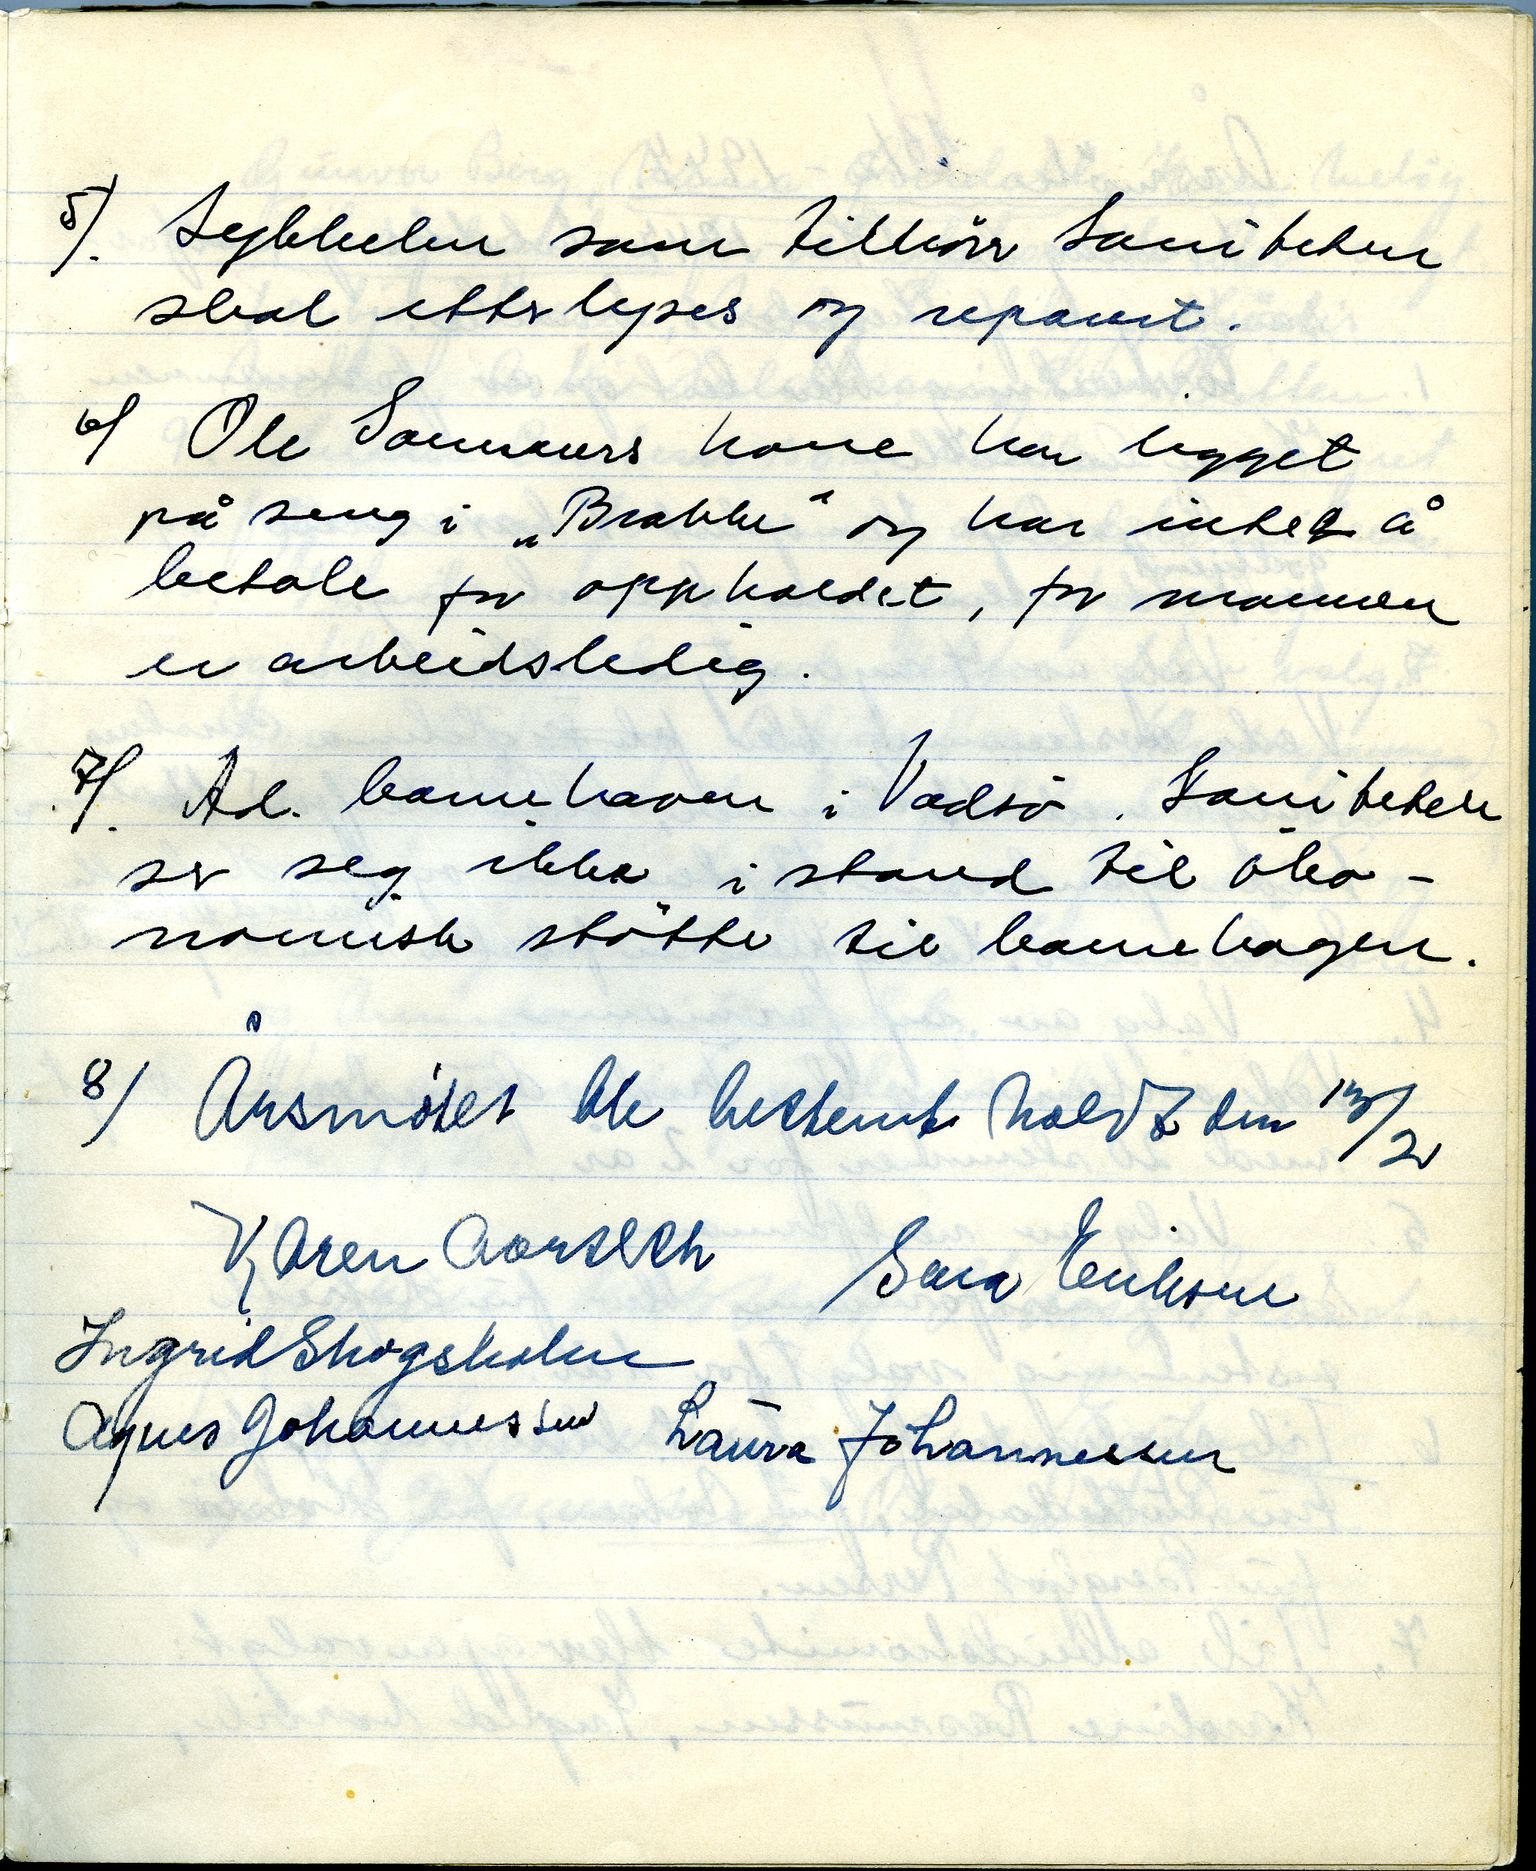 5). Sykkelen som tilhörr Saniteten
skal etterlyses og reparert.
6) Ole Sammuers kone har ligget
på seng i „Brakke" og har intet å
betale for oppholdet, for mannen
er arbeidsledig.
7). Ad. barnehaven i Vadsö. Saniteten
ser seg ikke i stand til öko-
nomisk stötte til barnehagen.
8) Årsmötet ble bestemt holdt den 13/2
Karen Aarseth Sara Eriksen
Ingrid Skogsholm
Agnes Johannessen Laura Johannessen